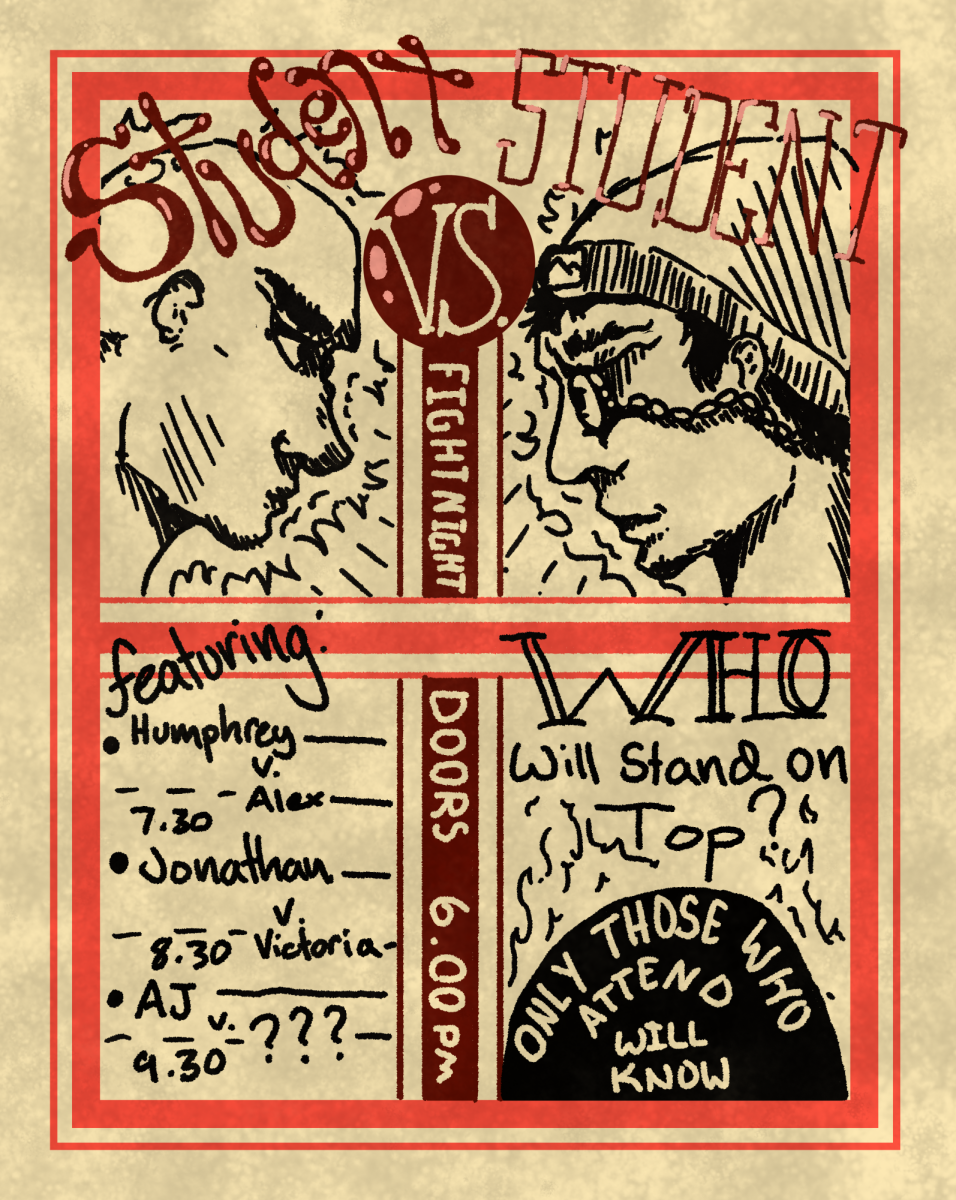 Student STUDENT
V.S.
FIGHT NIGHT
featuring:
• Humphrey
v.
Alex
7.30
• Jonathan
v.
8.30 Victoria
• AJ
v. ???
9.30
DOORS 6.00 PM
WHO
Will Stand on
Top?
ONLY THOSE WHO
ATTEND
WILL
KNOW